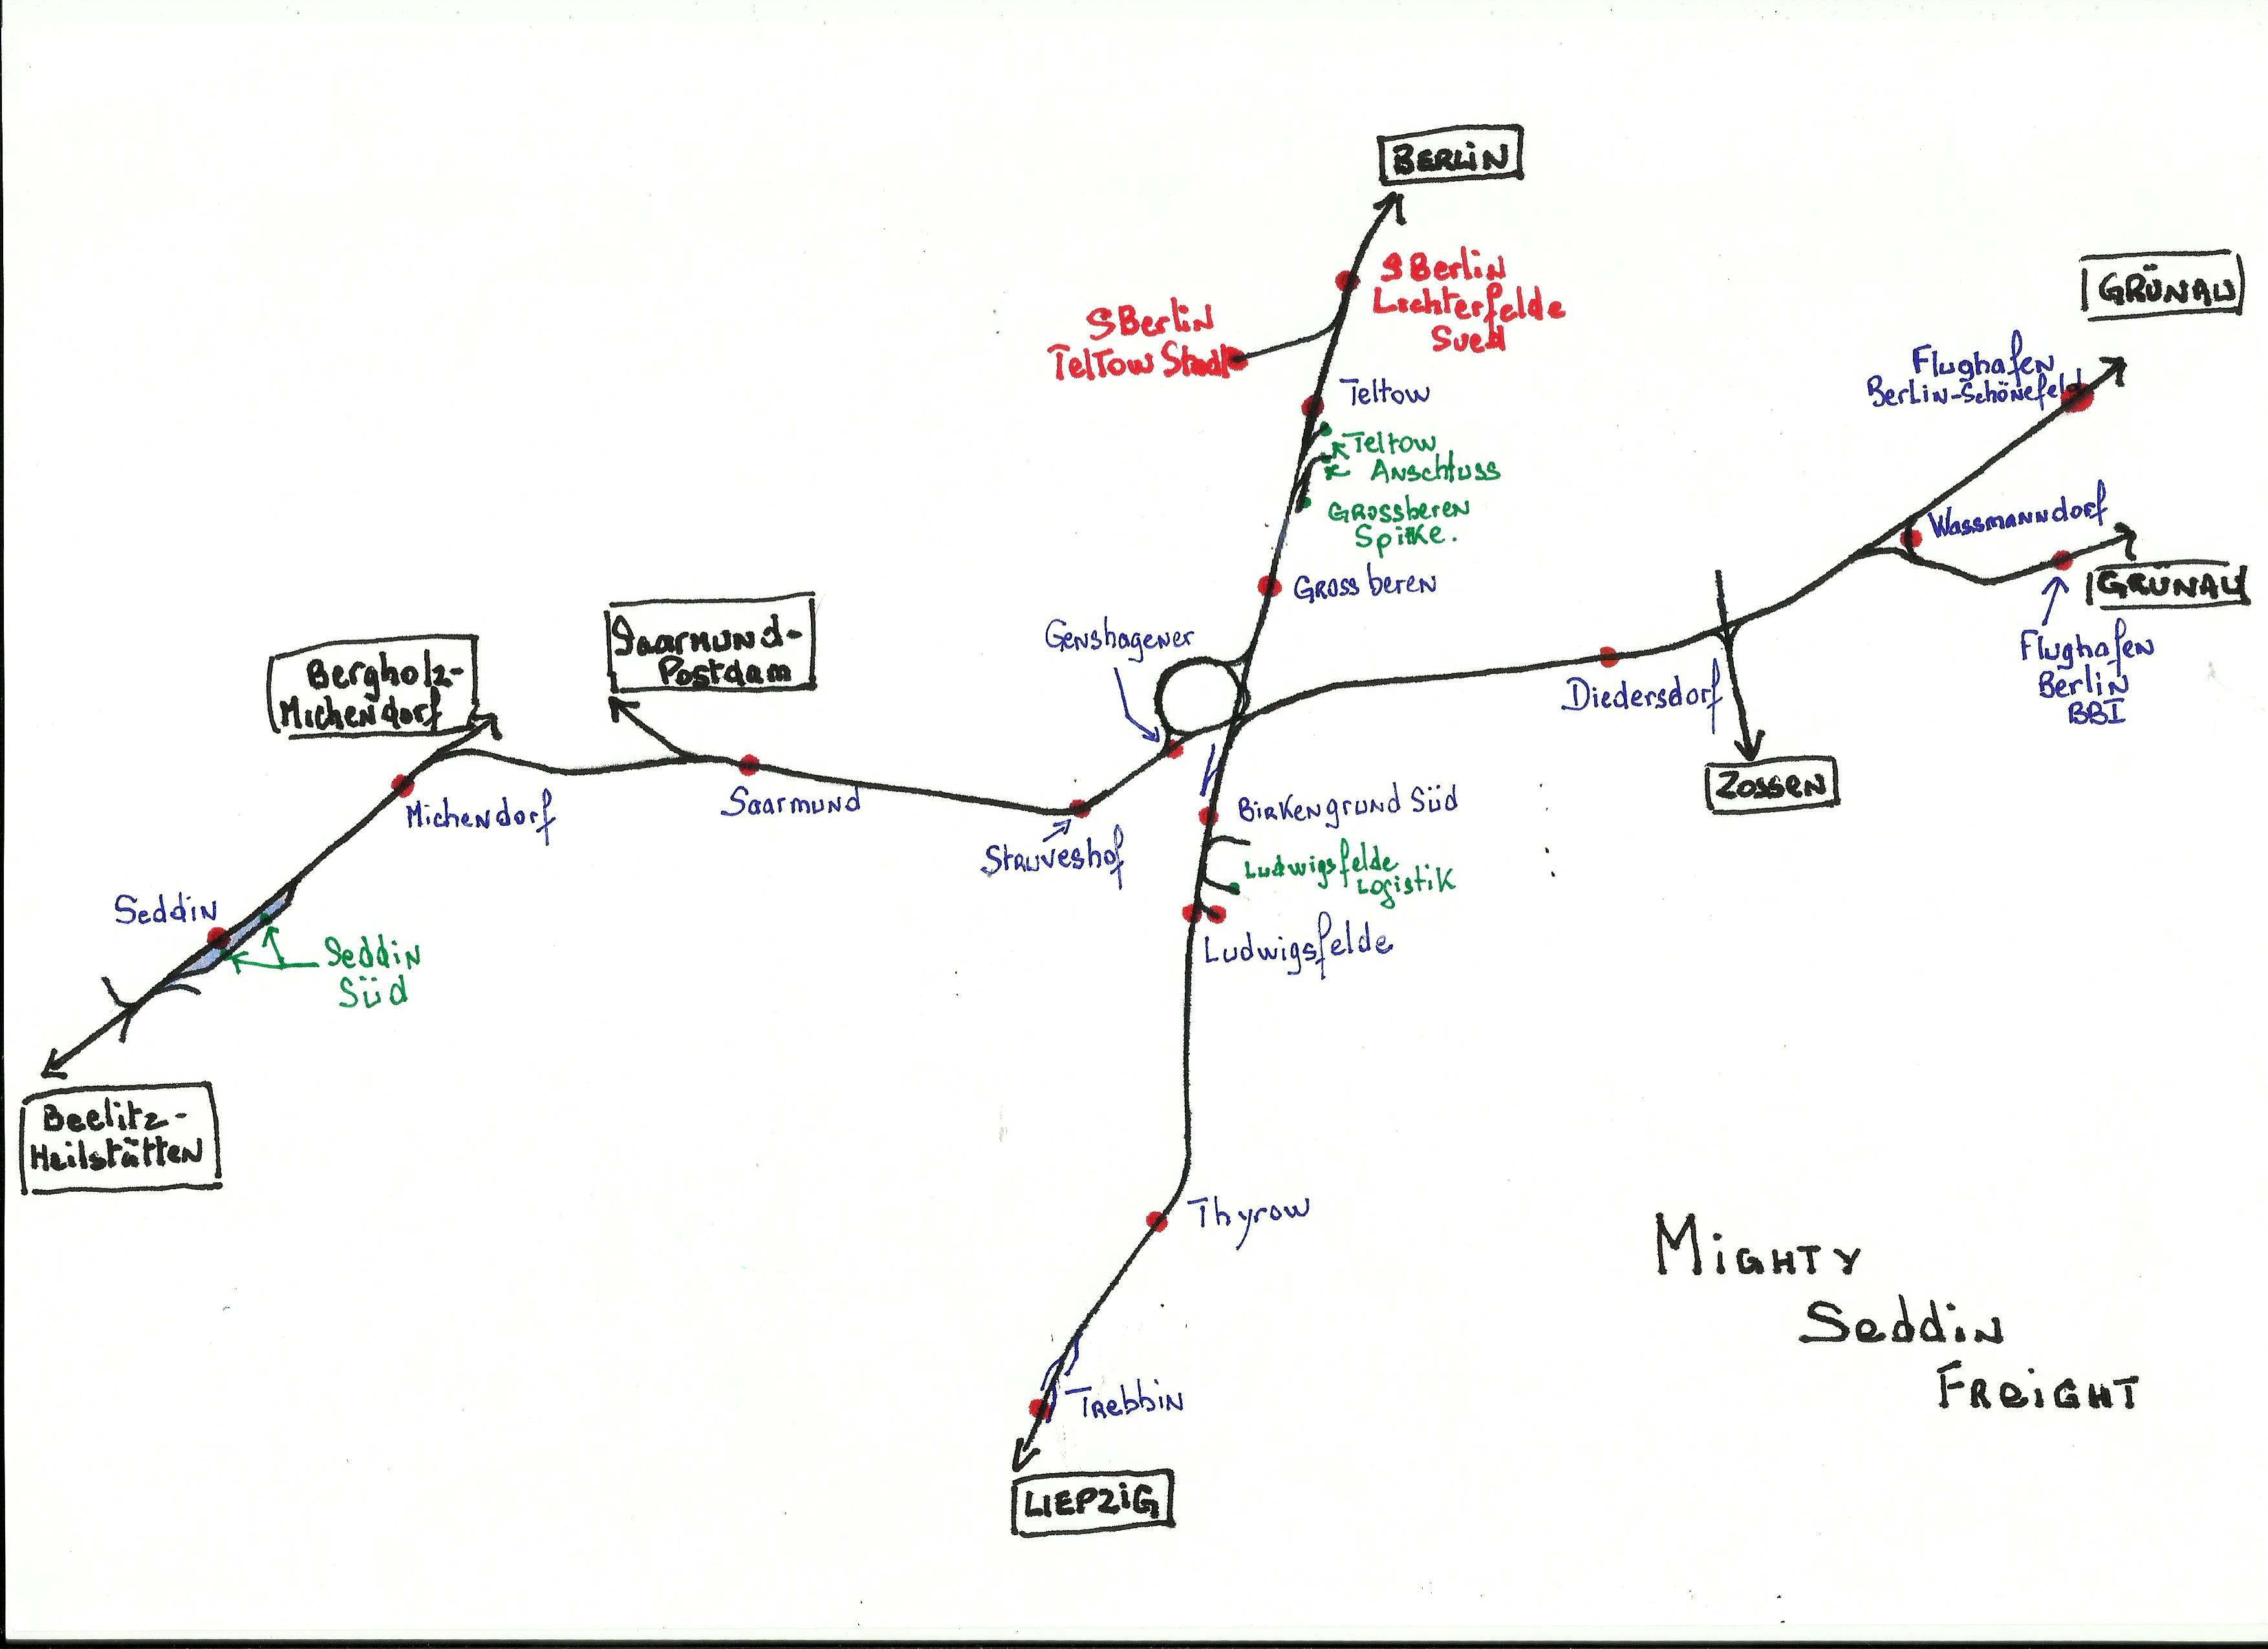 BERLIN
S Berlin
Lichterfelde
Sued
S Berlin
Teltow Stadt
GRÜNAU
Flughafen
Berlin-Schönefeld
Teltow
Teltow
Anschluss
Grossberen
Spitke.
Wassmanndorf
GRÜNAU
Flughafen
Berlin
BBI
Gross beren
Genshagener
Saarmund-
Postdam
Bergholz-
Michendorf
Diedersdorf
Zossen
Michendorf
Saarmund
Struveshof
Birkengrund Süd
Ludwigsfelde
Logistik
Ludwigsfelde
Seddin
Seddin
Süd
Beelitz-
Heilstätten
Thyrow
Trebbin
LIEPZIG
Mighty
Seddin
Freight